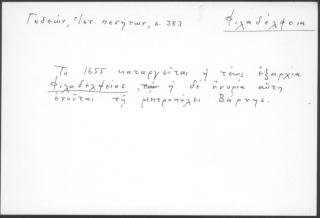 Γεδεών, σ. 383
Φιλαδέλφεια
Τὸ 1655 καταργεῖται ἡ τέως ἐξαρχία
Φιλαδελφείας, ἡ δὲ ἐνορία αὕτη
ἑνοῦται τῇ μητροπόλει Βάρνης.